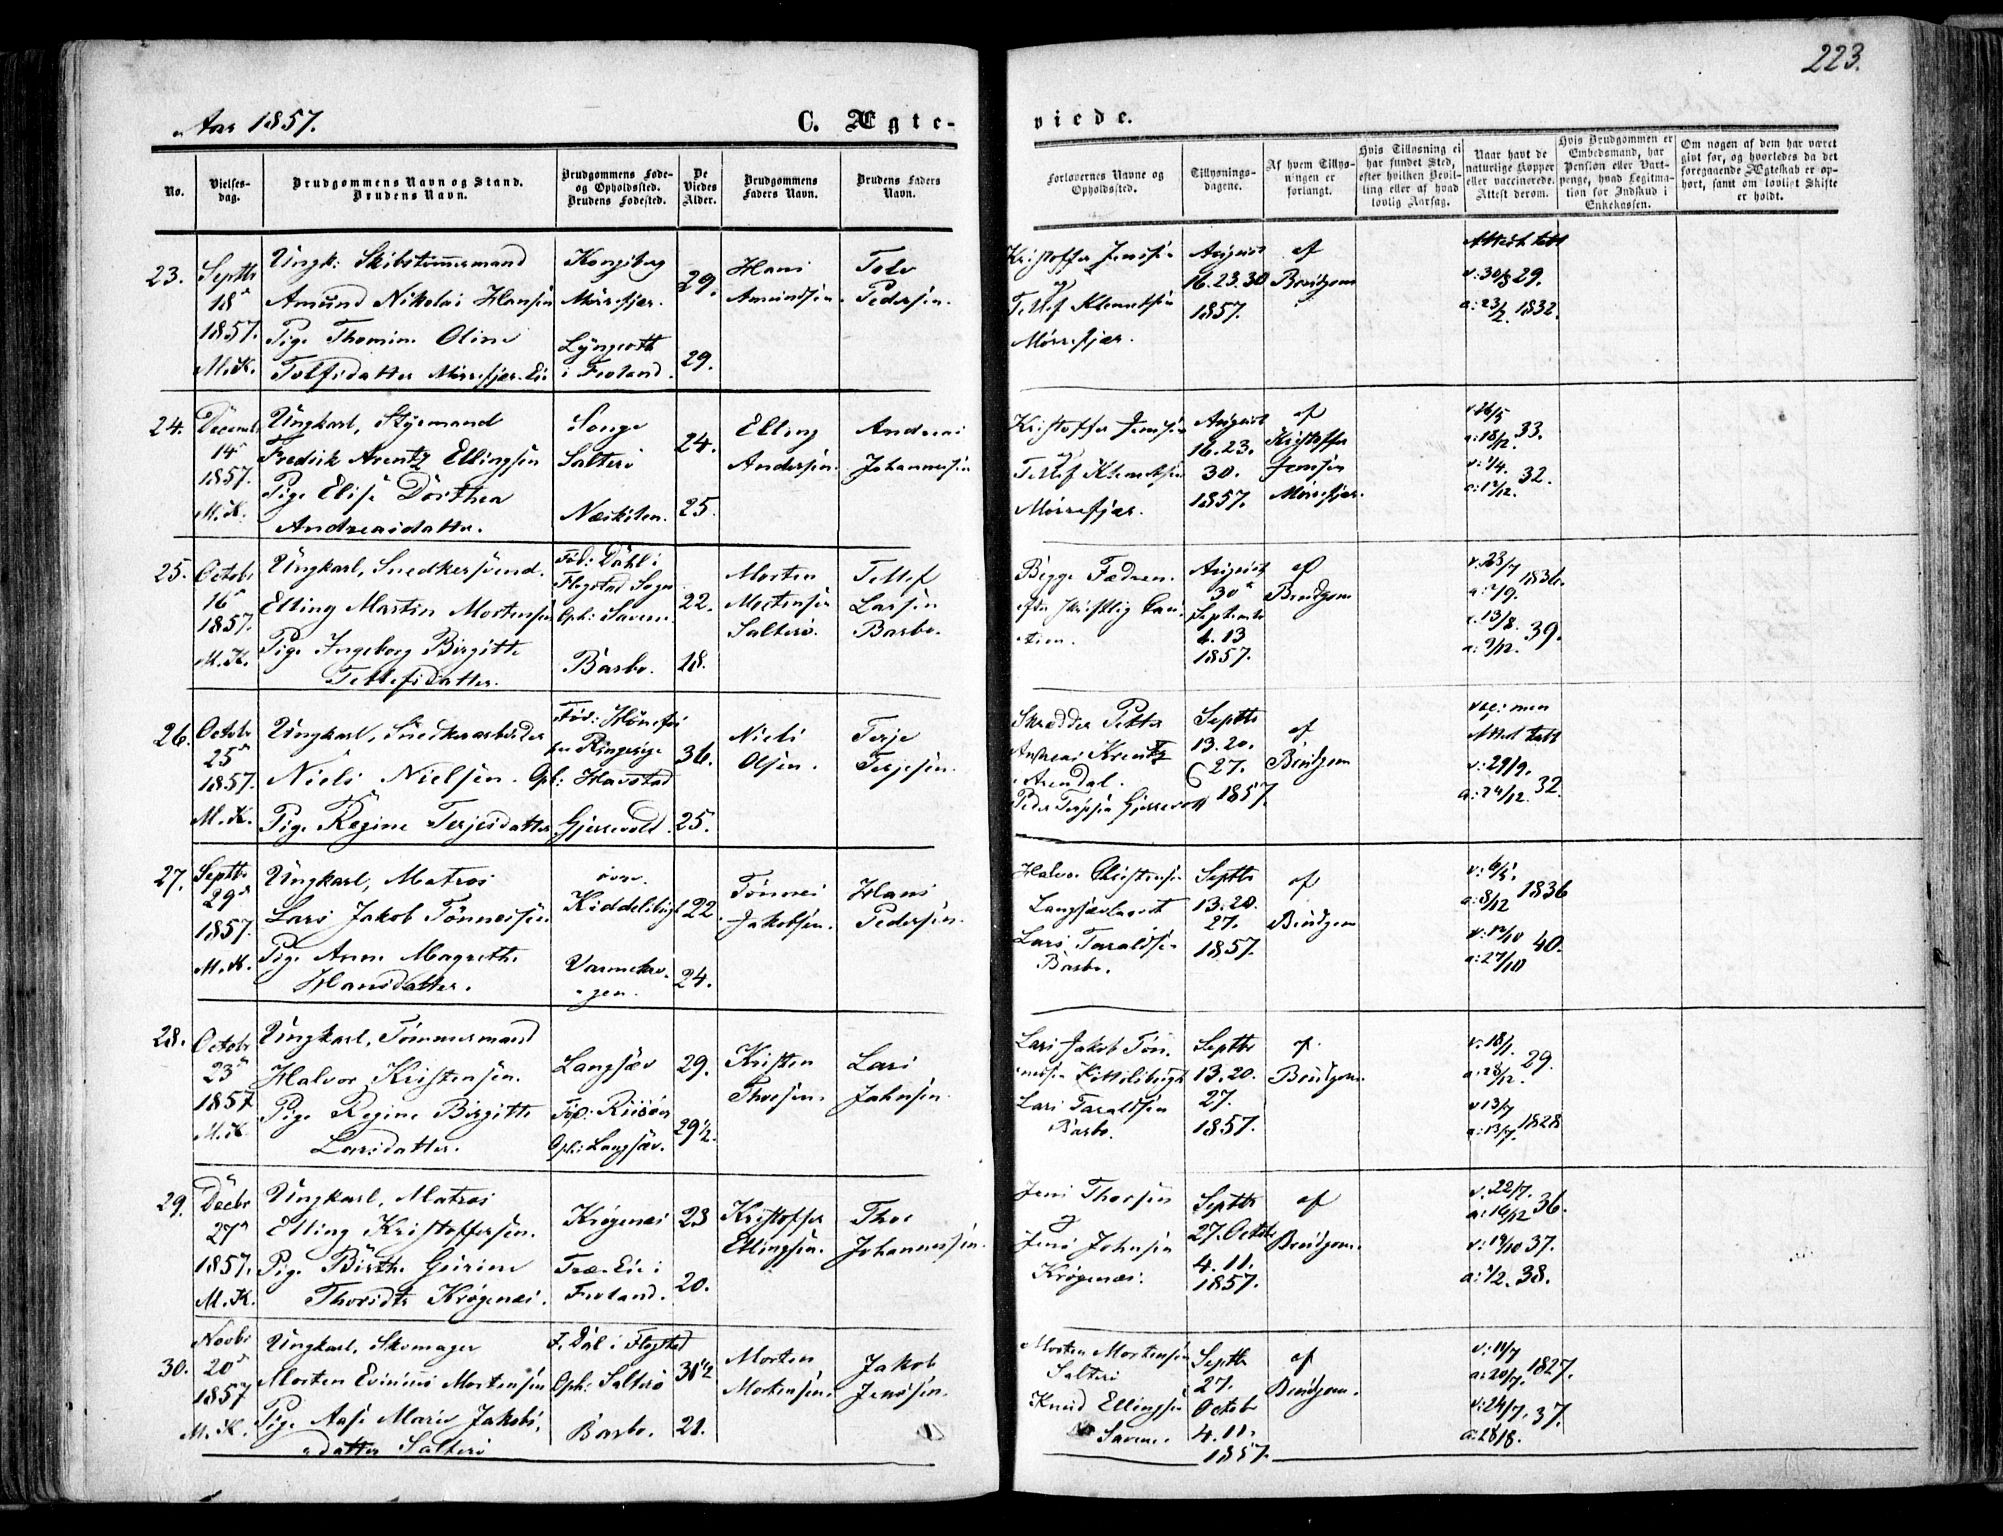 223.
Aar 1857.
C. Ægte-
viede.
No.
Vielses-
dag.
Brudgommens Navn og Stand.
Brudens Navn.
Brudgommens Føde-
og Opholdssted.
Brudens Fødested.
De
Viedes
Alder.
Brudgommens
Faders Navn.
Brudens Faders
Navn.
Forlovernes Navne og
Opholdssted.
Tillysnings-
dagene.
Af hvem Tillys-
ningen er
forlangt.
Hvis Tillysning ei
har fundet Sted,
efter hvilken Bevil-
ling eller af hvad
lovlig Aarsag.
Naar havt de
naturlige Kopper
eller vaccinerede.
Attest derom.
Hvis Brudgommen er
Embedsmand, har
Pension eller Vart-
penge, hvad Legitima-
tion for Indskud i
Enkekassen.
Om nogen af dem har været
gift før, og hvorledes da det
foregaaende Ægteskab er op-
hørt, samt om lovligt Skifte
er holdt.
23.
Septbr
18d
1857.
M.K.
Ungk: Skibstømmermand
Amund Nikolai Hansen
Pige Thomine Oline
Tolfsdatter Mørefjær-Eie
Kongsberg
Mørefjær.
Lyngroth
i Froland.
29.
29.
Hans
Amundsen.
Tolv
Pedersen.
Kristoffer Jensen
og
Tellef Klemetsen
Mørrefjær.
August
16. 23. 30
1857.
af
Brudgom
v: 30/8 29.
a: 23/2. 1832.
24.
Decemb.
14d
1857.
M.K.
Ungkarl, Styrmand
Fredrik Arentz Ellingsen
Pige Elise Dorthea
Andreasdatter.
Songe
Salterø
Næskilen.
24.
25.
Elling
Andersen.
Andreas
Johannesen
Kristoffer Jensen
og
Tellef Klemetsen
Mørrefjær.
August
16. 23.
30.
1857.
af
Kristoffer
Jensen
Mørrefjær.
v: 26/5
a: 18/12. 33.
v: 1/4.
32.
25.
Octobr
16d
1857.
M.K.
Ungkarl, Snedkersvend.
Elling Martin Mortensen
Pige Ingeborg Birgitte
Tellefsdatter.
Fød: Dahl i
Flegstad Sogn
Oph: Savene.
Barbo.
22.
18.
Morten
Mortensen
Salterø.
Tellef
Larsen
Barbo.
Begge Fædrene
efter skriftlig Cau-
tion.
August
30d
Septembr
6. 13
1857.
af
Brudgom
v. 23/7
a: 2/9. 1836.
v. 13/8.
a: 2/12. 39.
26.
Octobr
25d
1857.
M.K.
Ungkarl, Snedkerarbeider
Niels Nielsen.
Pige Regine Terjesdatter
Fød: Hønefos
Ringerige
Oph: Havstad
Gjerrevold.
36.
25.
Niels
Olsen.
Terje
Terjesen.
Skredder Petter
Andreas Krentz
Arendal.
Peder Terjesen Gjerrevold
Septbr
13. 20.
27.
1857.
af
Brudgom
v: 29/9.
a: 24/12. 32.
27.
Septbr
29d
1857.
M.K.
Ungkarl, Matros
Lars Jakob Tønnesen
Pige Anne Magrethe
Hansdatter.
øvre.
Kiddelsbugt
Varmekro-
gen.
22.
24.
Tønnes
Jakobsen.
Hans
Pedersen.
Halvor Christensen
Langsævhavet
Lars Taraldsen
Barbo.
Septbr
13. 20.
27.
1857.
af
Brudgom
v: 6/5.
a: 8/12 1836
v: 12/10
a: 27/10 40.
28.
Octobr
23d
1857.
M.K.
Ungkarl, Tømmermand
Halvor Kristensen.
Pige Regine Birgitte
Larsdatter.
Langsæv
Fød: Riisøer
Oph: Langsæv.
29.
29 1/2.
Kristen
Thorsen.
Lars
Johnsen.
Lars Jakob Tøn-
nesen Kittelsbugt
Lars Taraldsen
Barbo.
Septbr
13. 20.
27.
1857.
af
Brudgom.
v: 18/1.
a: 28/12. 29.
v: 13/7
a: 13/7. 1828
29.
Decbr
27d
1857.
M.K.
Ungkarl, Matros
Elling Kristoffersen.
Pige Birthe Gurine
Thorsdtr Krøgenæs.
Krøgenæs
Træe-Eie i
Froland.
23
20.
Kristoffer
Ellingsen.
Thor
Johannesen.
Jens Thorsen
og
Jens Johnsen
Krøgenæs.
Septbr
27. Octobr
4. 11.
1857.
af
Brudgom.
v. 22/7.
a: 16/12 36.
v: 19/10 37.
a: 1/2. 38.
30.
Novbr
20d
1857
M.K.
Ungkarl, Skomager
Morten Evinius Mortensen
Pige Aase Marie Jakobs-
datter Salterø
F. Dal i Flegstad
Oph: Salterø
Barbo.
31 1/2
21.
Morten
Mortensen.
Jakob
Jensen.
Morten Mortensen
Salterø
Knud Ellingsen
Savene.
Septbr
27.
Octobr
4. 11.
1857.
af
Brudgom.
v: 11/7
a: 20/7. 1827.
v: 24/7. 37.
a: 28/8.